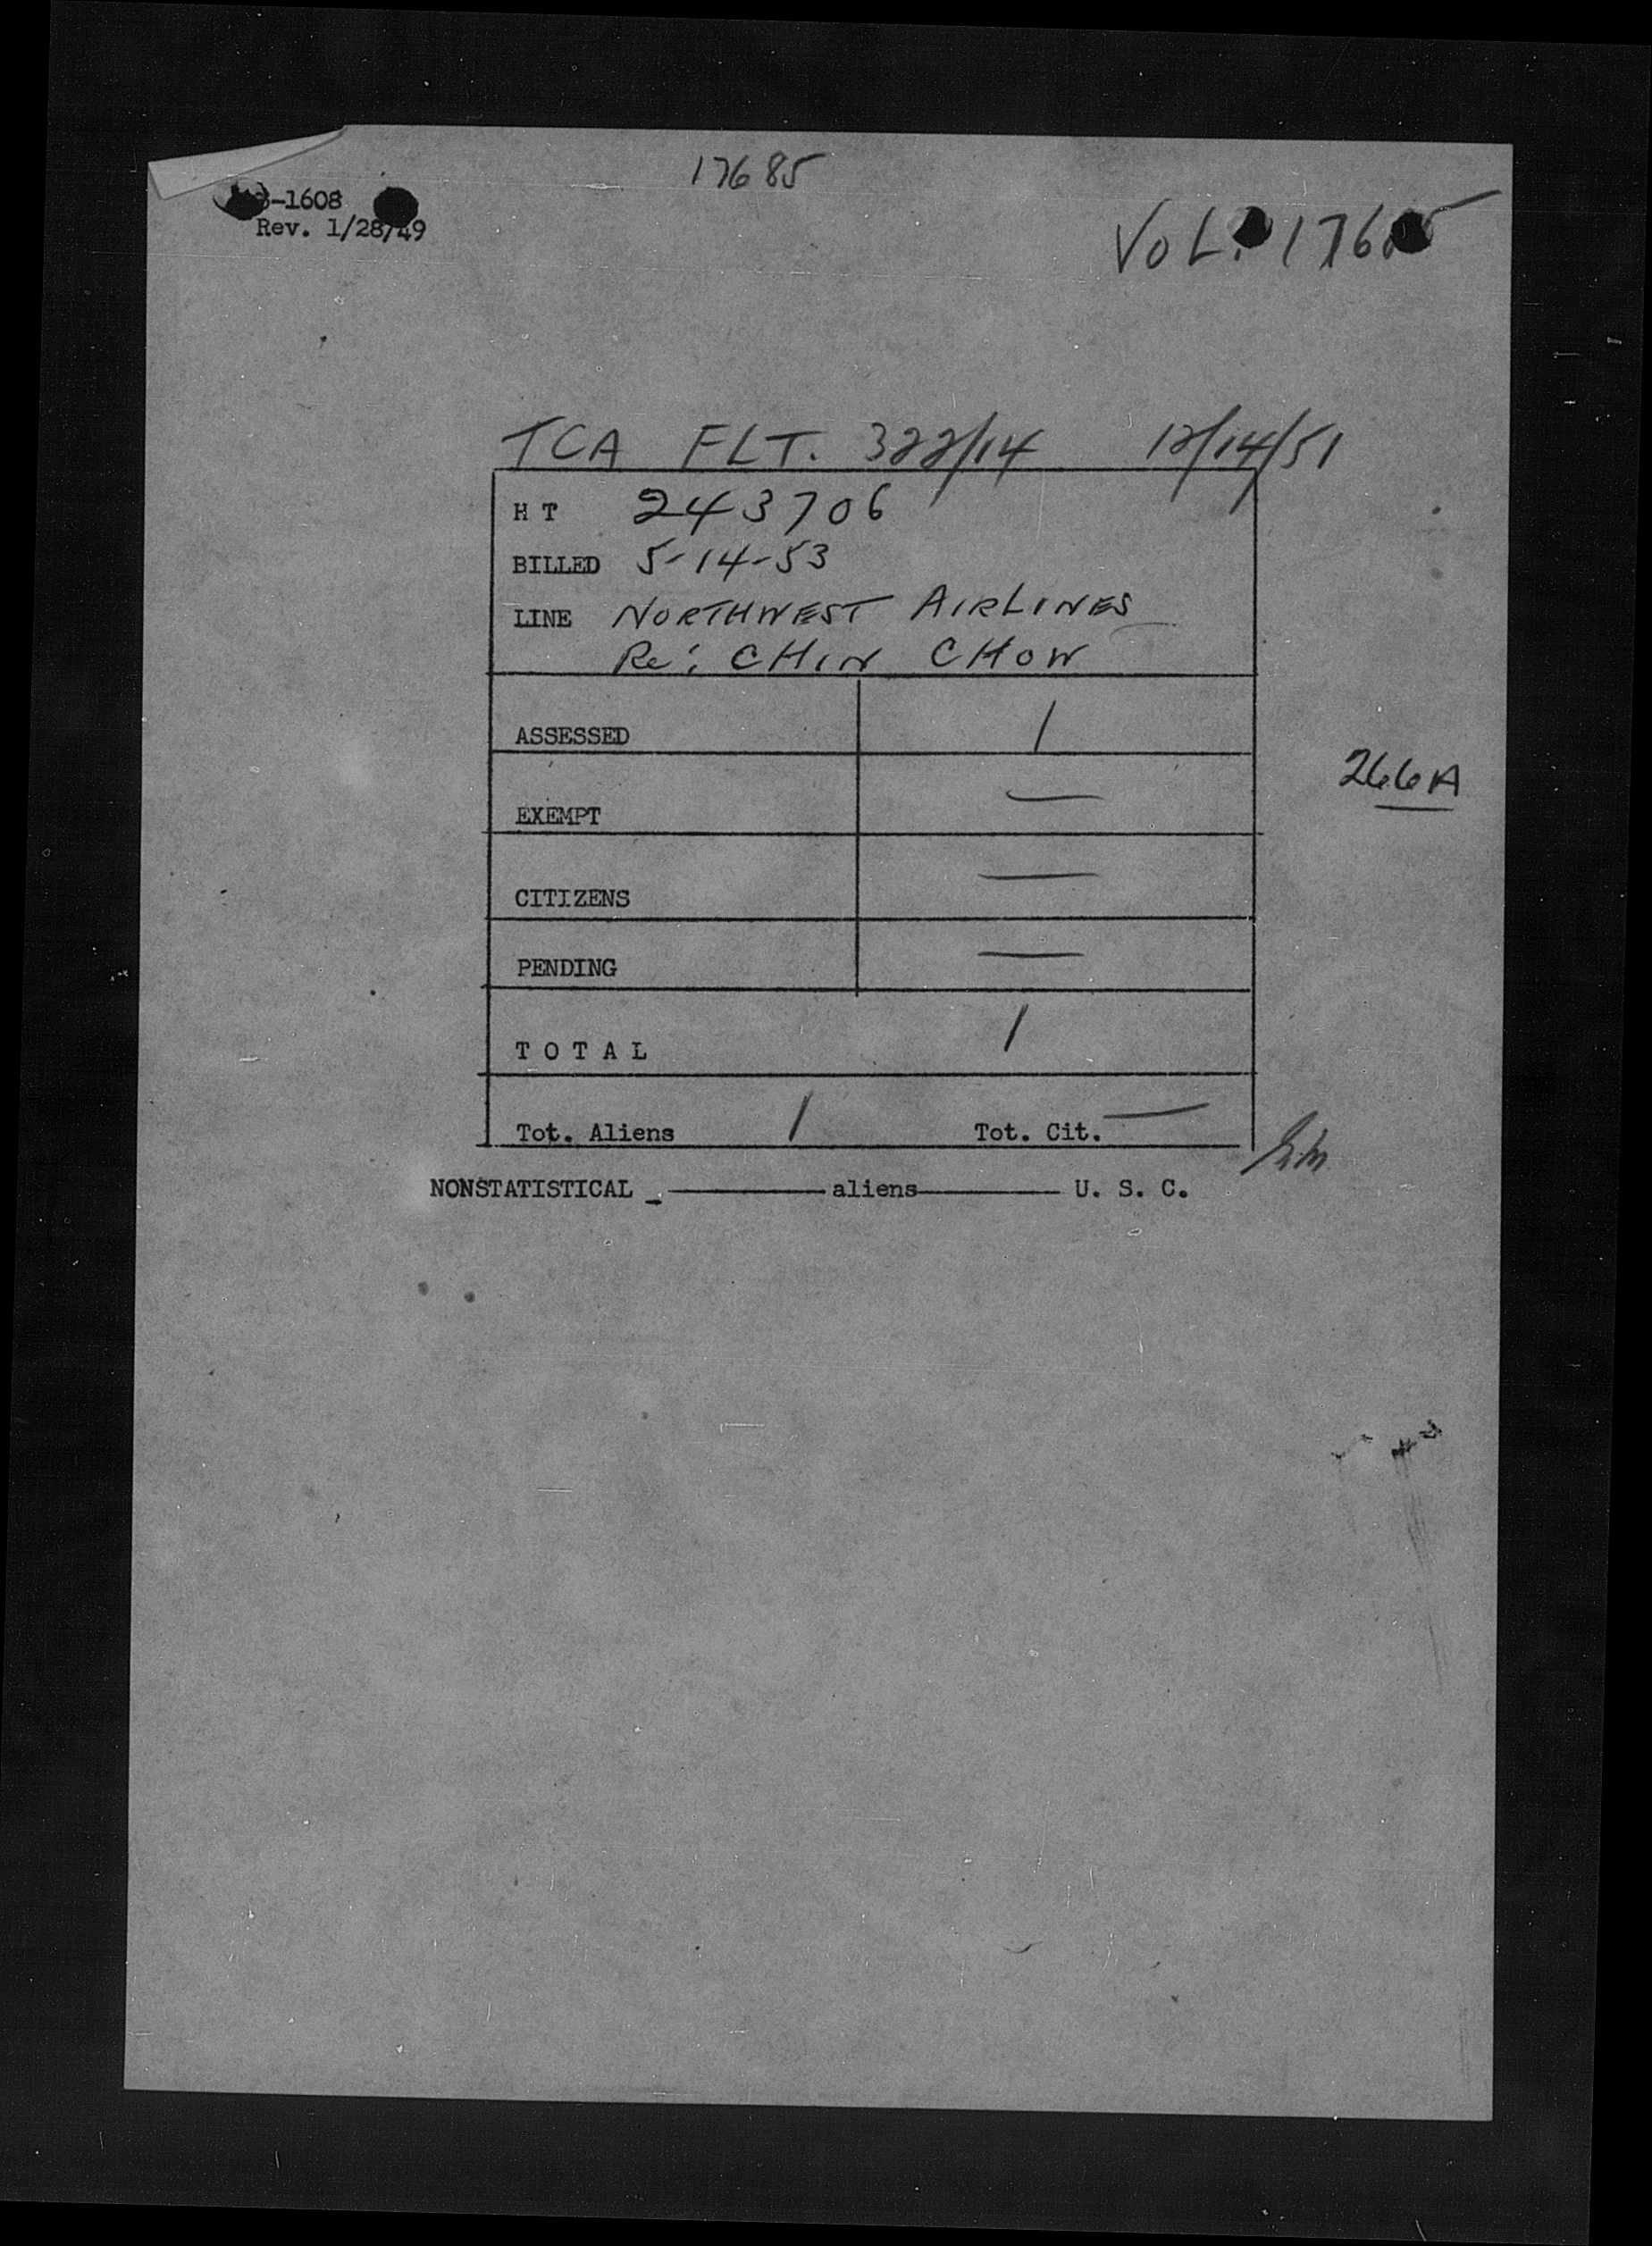 17685
-1608
Rev. 1/28/49
VOL. 176 5
TCA FLT. 322/14 12/14/51
H T 243706
BILLED 5-14-53
LINE NORTHWEST AIRLINES
Re: CHIN CHOW
ASSESSED 1
EXEMPT —
266A
CITIZENS —
PENDING —
T O T A L 1
Tot. Aliens 1 Tot. Cit. —
NONSTATISTICAL aliens U. S. C.